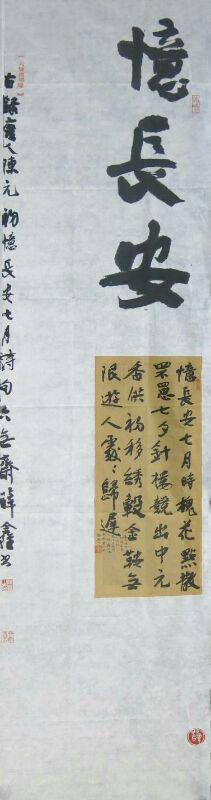 憶長安
憶長安七月時槐花點散
罘罳七夕針樓競出中元
香供初移繡轂金鞍無
限遊人處處歸遲
陳元初憶長安七月詩句